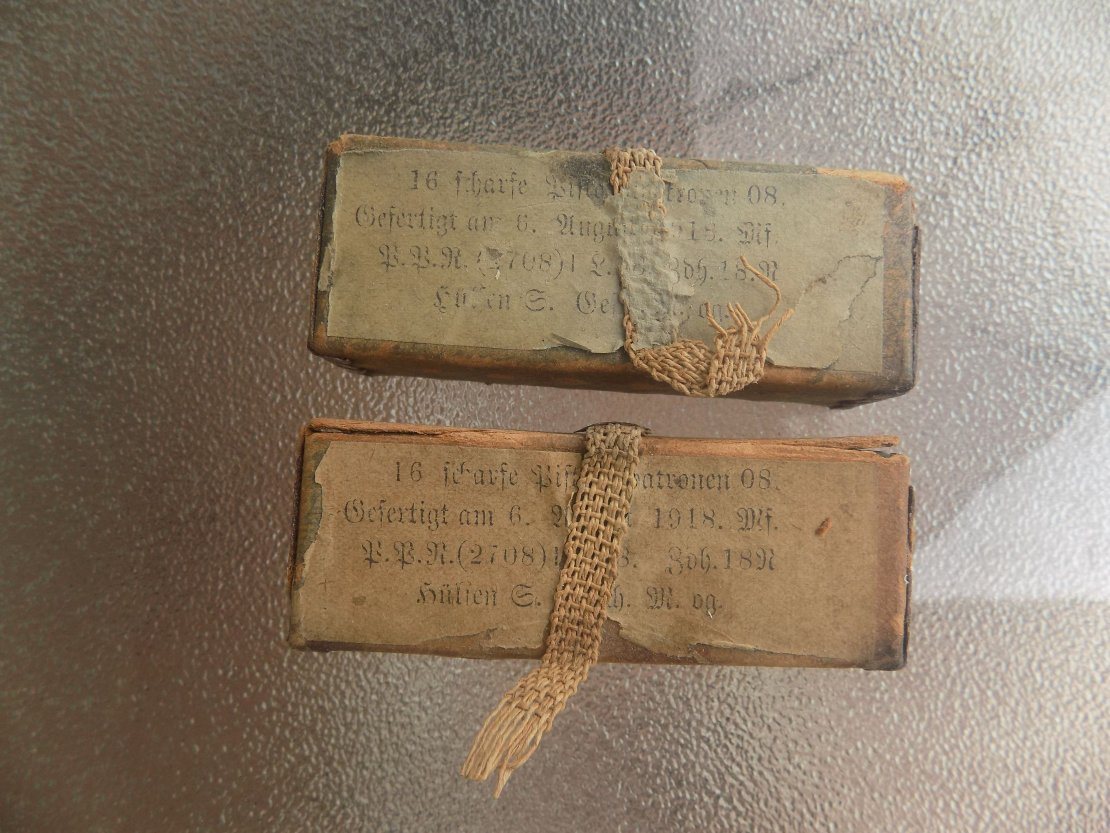 16 scharfe Pistolenpatronen 08.
Gefertigt am 6. August 1918. Mf.
P.P.N.(2708)1 Zdh.18.N
Hülsen S. M. og.
16 scharfe Pistolenpatronen 08.
Gefertigt am 6. August 1918. Mf.
P.P.N.(2708)1 Zdh.18N
Hülsen S. M. og.